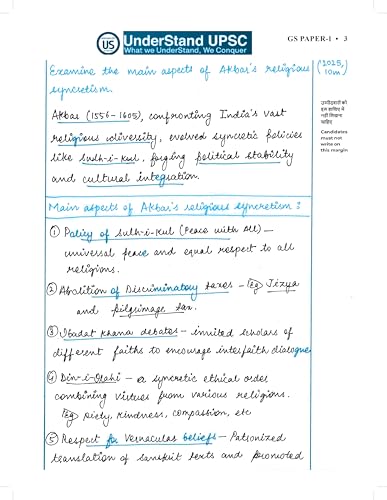 US
UnderStand UPSC
What we UnderStand, We Conquer
GS PAPER-I • 3
Examine the main aspects of Akbar's religious
syncretism.
(2025,
10m)
उम्मीदवारों को
इस हाशिये में
नहीं लिखना
चाहिए
Candidates
must not
write on
this margin
Akbar (1556-1605), confronting India's vast
religious diversity, evolved syncretic policies
like Sulh-i-kul, forging political stability
and cultural integration.
Main aspects of Akbar's religious syncretism:
① Policy of Sulh-i-kul (Peace with All) —
universal peace and equal respect to all
religions.
② Abolition of Discriminatory taxes - Eg Jizya
and pilgrimage tax.
③ Ibadat Khana debates - invited scholars of
different faiths to encourage interfaith dialogue
④ Din-i-Ilahi - a syncretic ethical order
combining virtues from various religions.
Eg piety, kindness, compassion, etc
⑤ Respect for Vernacular beliefs - Patronized
translation of sanskrit texts and promoted